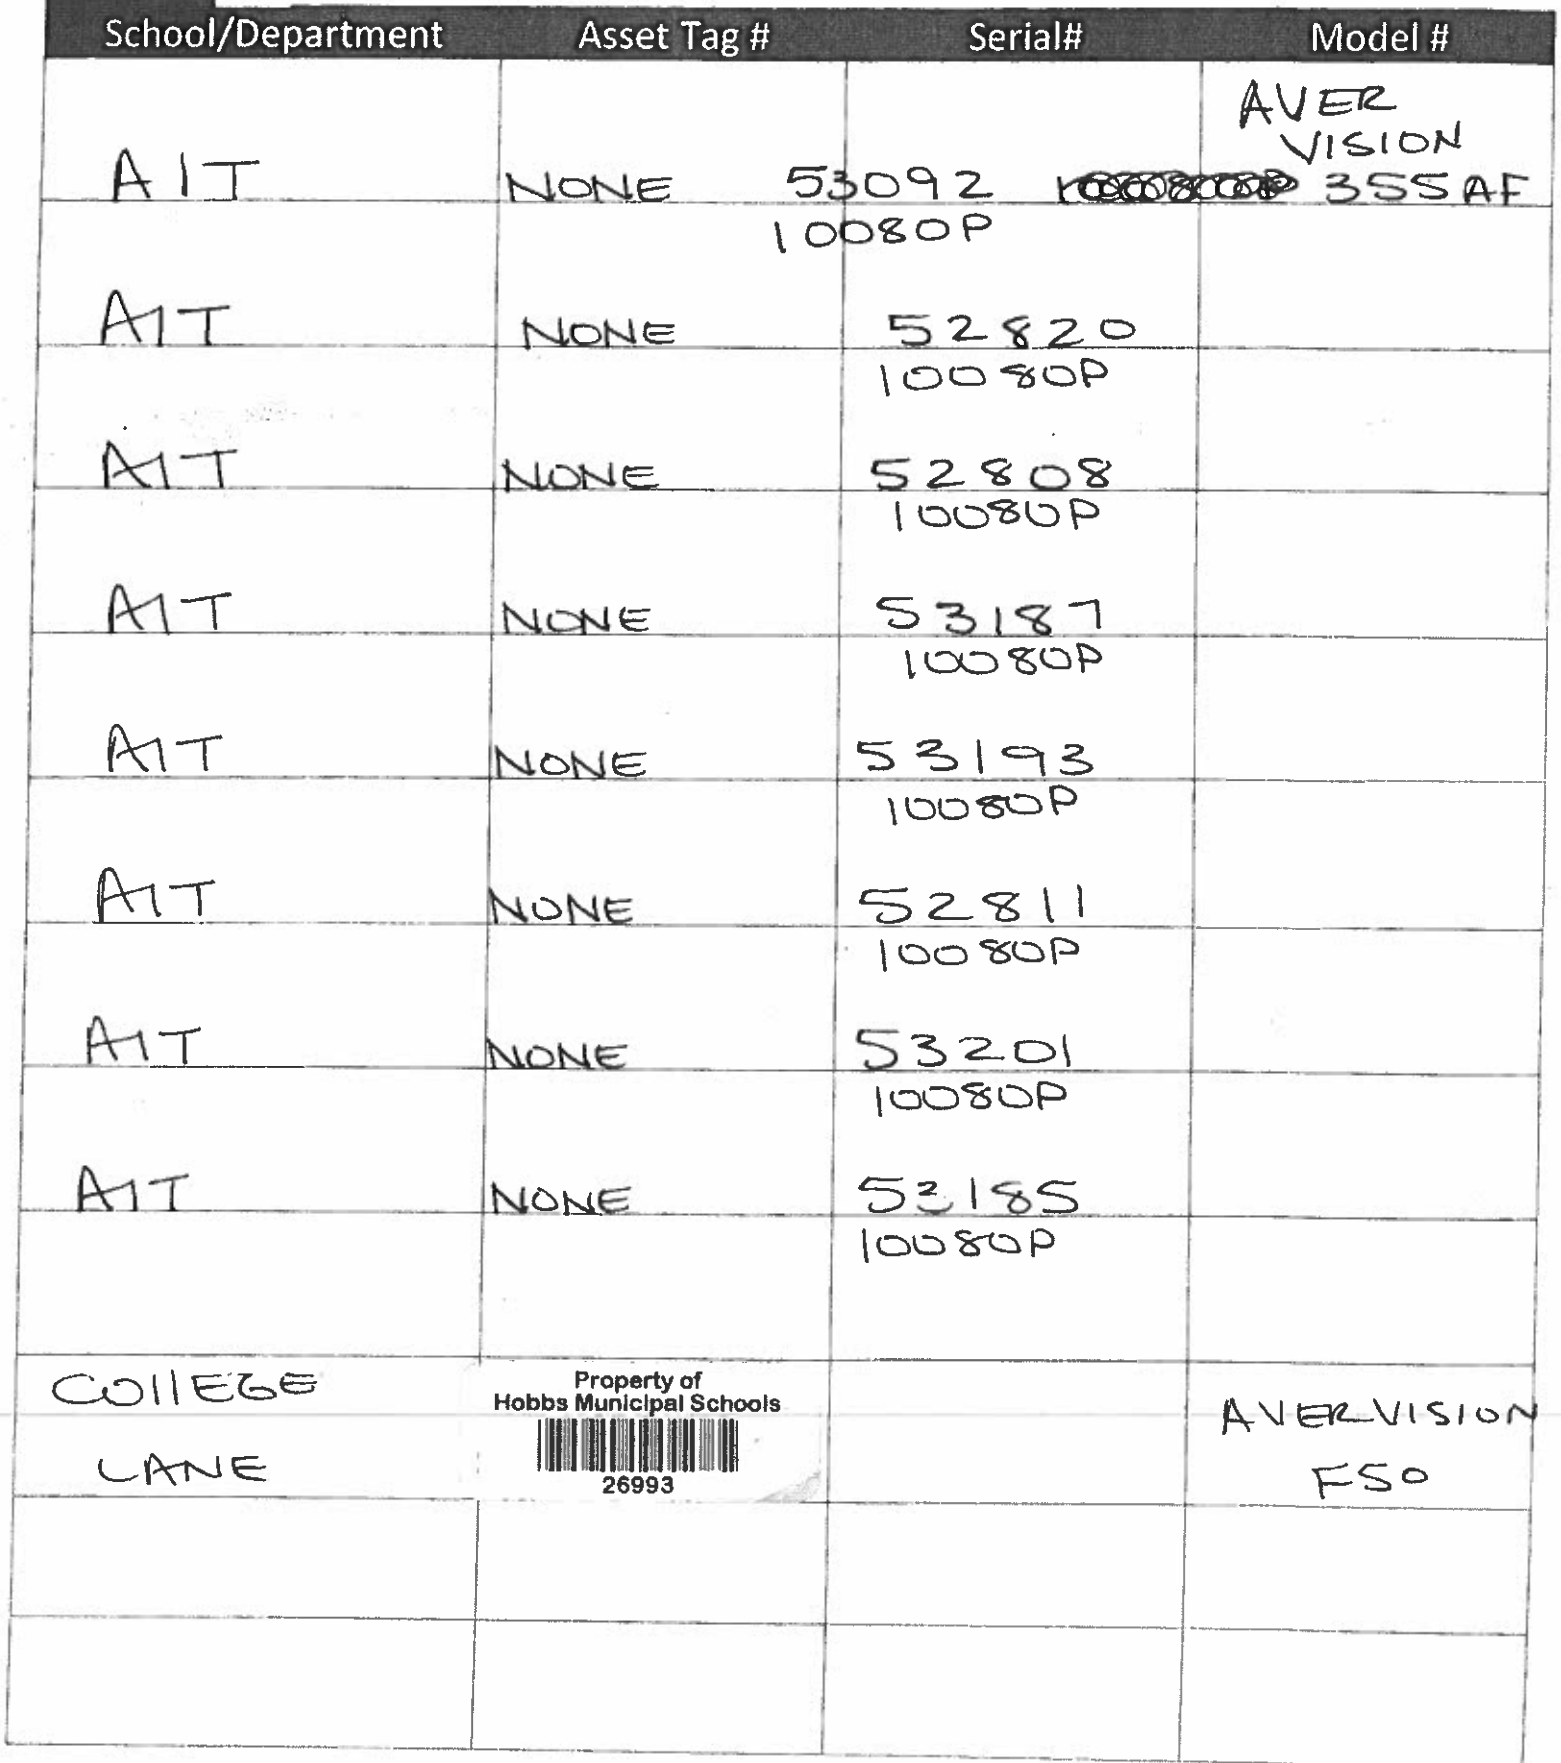 School/Department Asset Tag # Serial# Model #
AVER
VISION
AIT NONE 53092 355AF
10080P
AIT NONE 52820
10080P
AIT NONE 52808
10080P
AIT NONE 53187
10080P
AIT NONE 53193
10080P
AIT NONE 52811
10080P
AIT NONE 53201
10080P
AIT NONE 53185
10080P
COllEGE
LANE
Property of
Hobbs Municipal Schools
26993
AVERVISION
F50